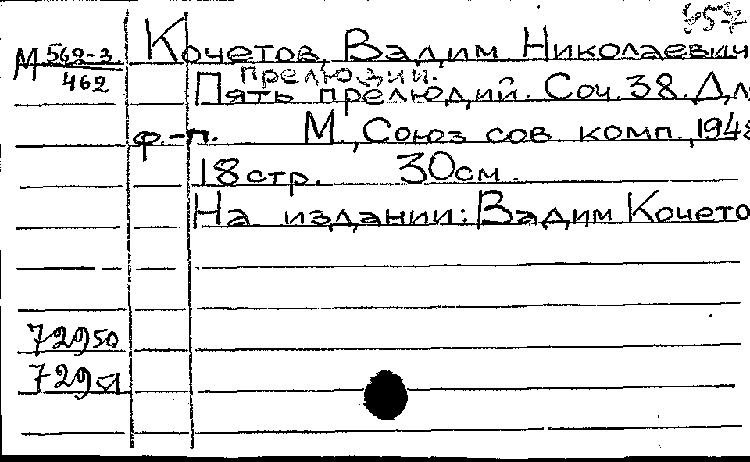 957
М 562-3/462
Кочетов, Вадим Николаевич
Прелюдии.
Пять прелюдий. Соч. 38. Дл
ф.-п. М., Союз сов. комп., 1948
18 стр. 30 см.
На издании: Вадим Кочето
72950
72951